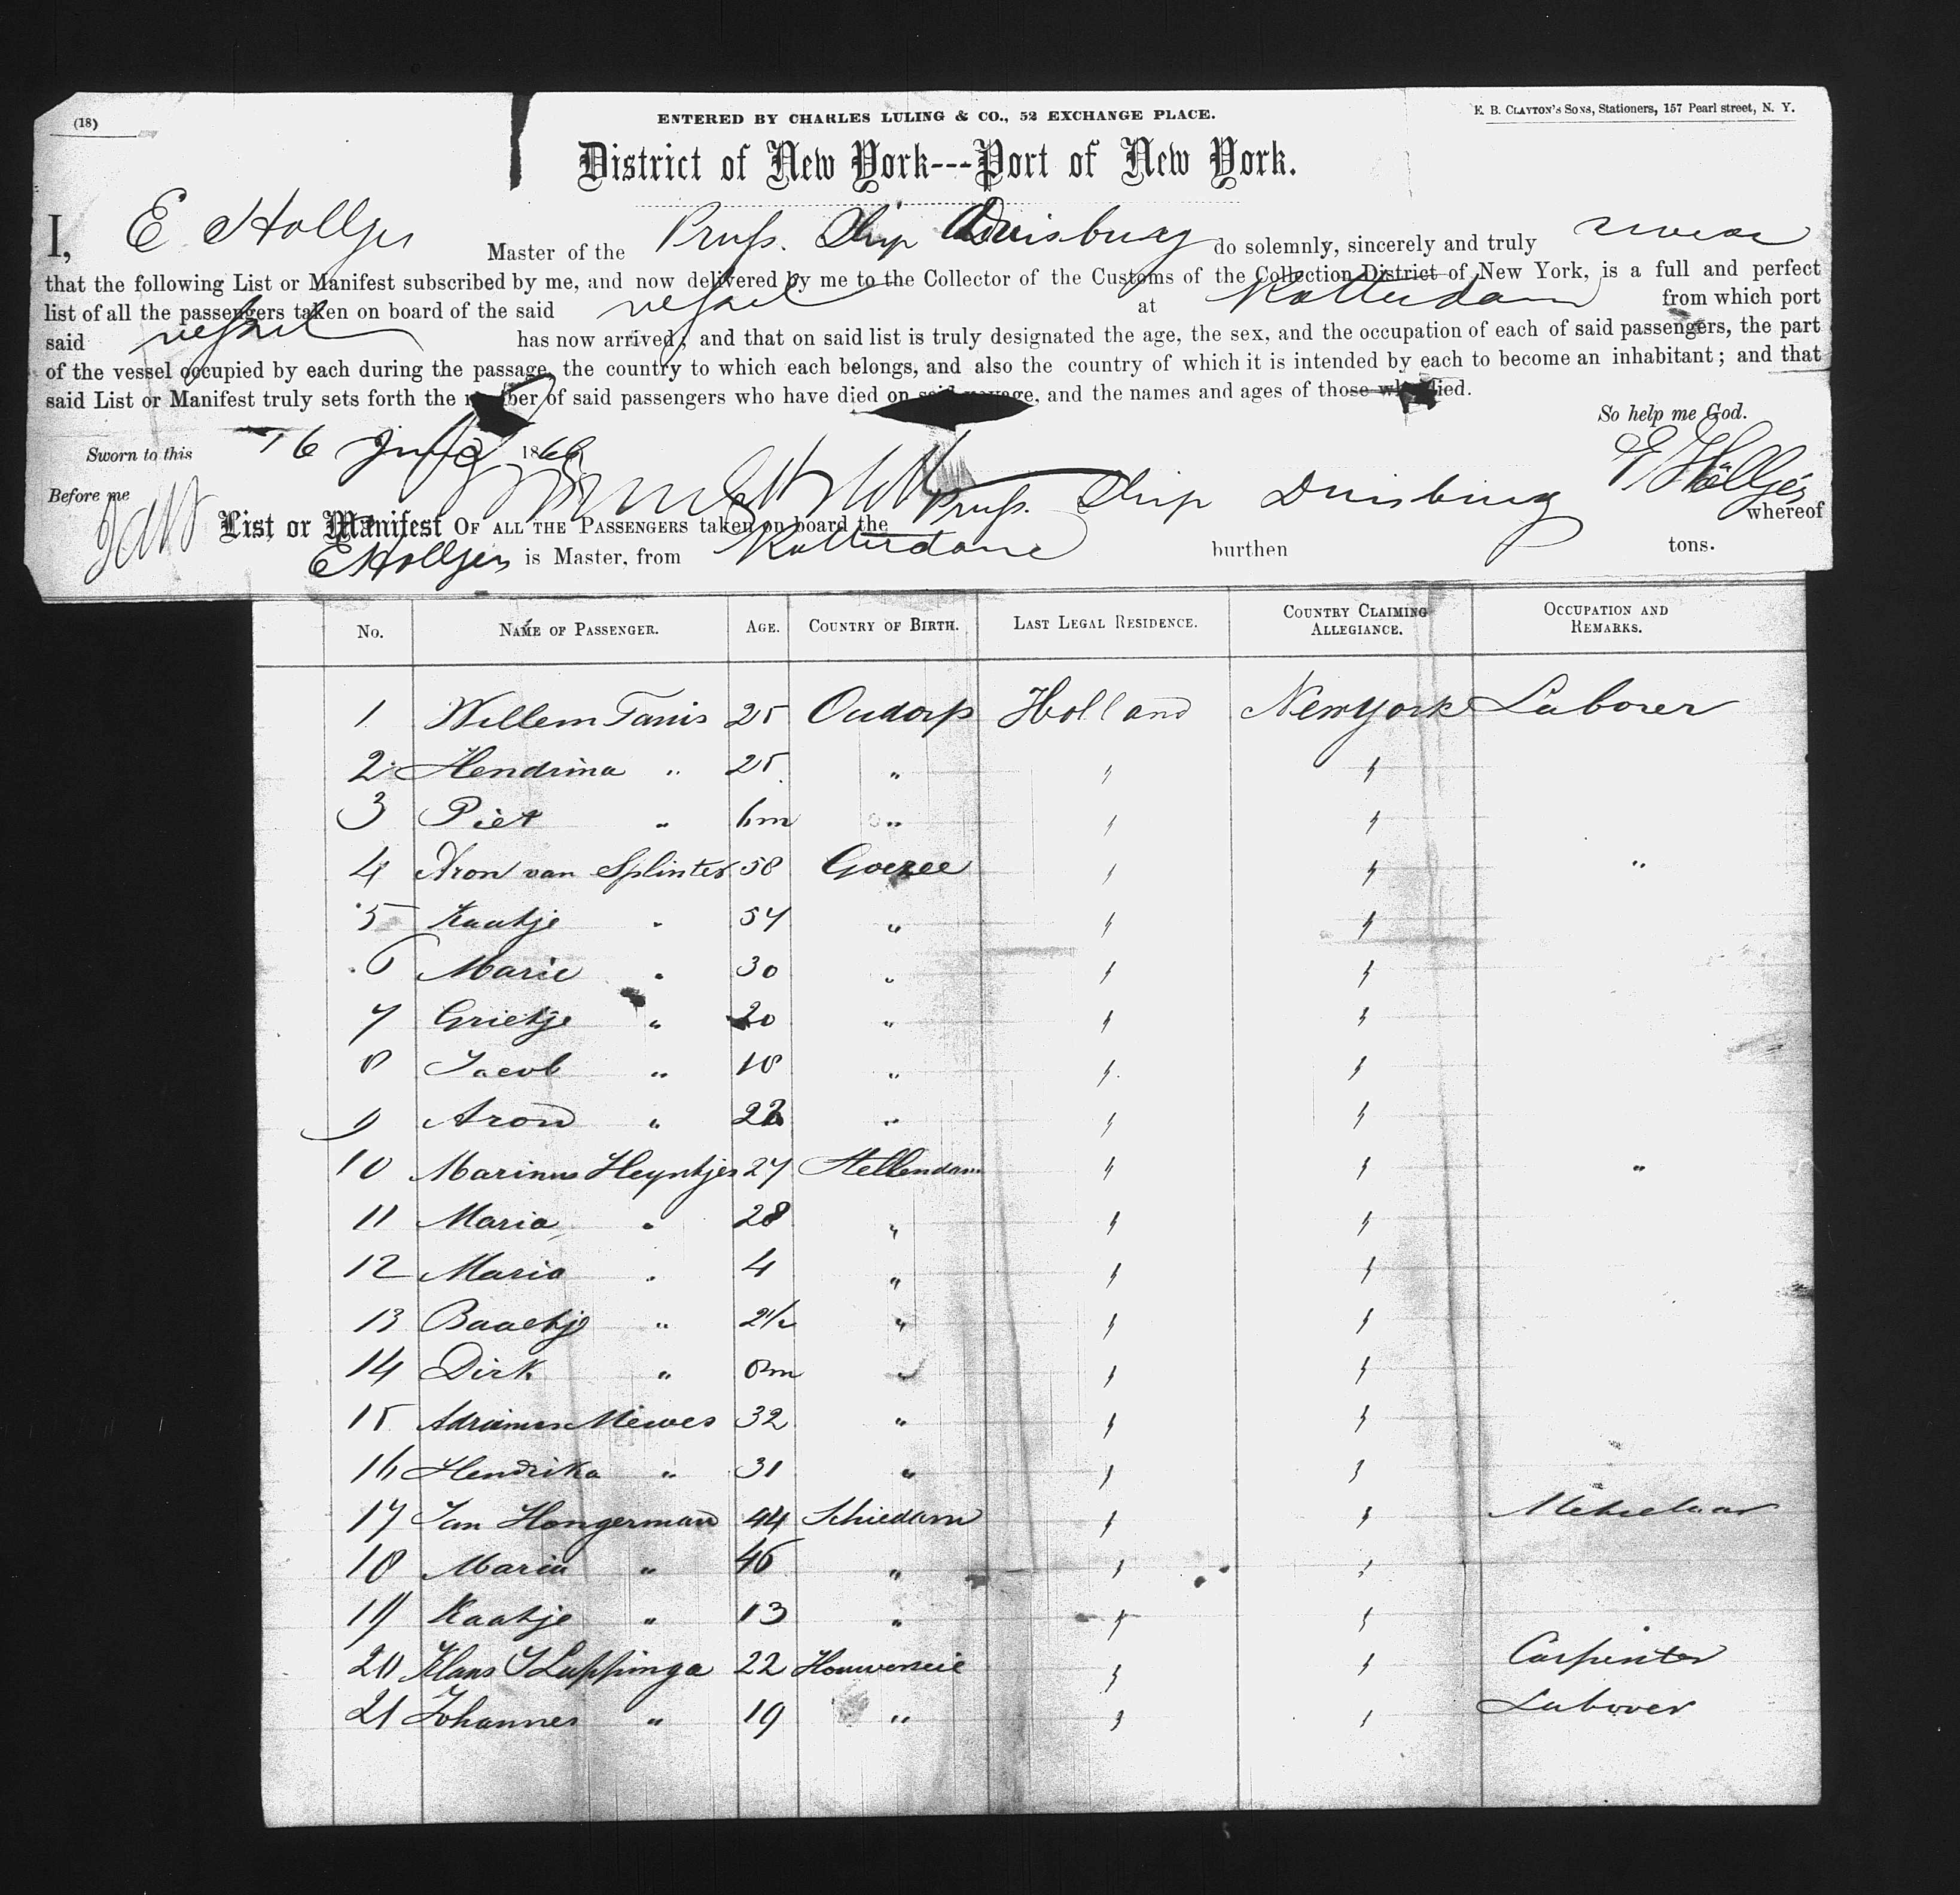 (18)
ENTERED BY CHARLES LULING & CO., 52 EXCHANGE PLACE.
E. B. CLAYTON'S SONS, Stationers, 157 Pearl street, N. Y.
District of New York---Port of New York.
I, E Holljes Master of the Pruss. Ship Duisburg do solemnly, sincerely and truly swear
that the following List or Manifest subscribed by me, and now delivered by me to the Collector of the Customs of the Collection District of New York, is a full and perfect
list of all the passengers taken on board of the said vessel at Rotterdam from which port
said vessel has now arrived; and that on said list is truly designated the age, the sex, and the occupation of each of said passengers, the part
of the vessel occupied by each during the passage, the country to which each belongs, and also the country of which it is intended by each to become an inhabitant; and that
said List or Manifest truly sets forth the number of said passengers who have died on said voyage, and the names and ages of those who died.
So help me God.
Sworn to this 16 1866 E Hölljes
Before me
List or Manifest OF ALL THE PASSENGERS taken on board the Pruss. Ship Duisburg whereof
E Holljes is Master, from Rotterdam burthen tons.
No. NAME OF PASSENGER. AGE. COUNTRY OF BIRTH. LAST LEGAL RESIDENCE. COUNTRY CLAIMING ALLEGIANCE. OCCUPATION AND REMARKS.
1 Willem Tanis 25 Oudorp Holland New York Laborer
2 Hendrina " 25 " " "
3 Piet " 6m " " "
4 Aron van Splinter 58 Goeree " " "
5 Kaatje " 57 " " "
6 Marie " 30 " " "
7 Grietje " 20 " " "
8 Jacob " 18 " " "
9 Aron " " " "
10 Marinus Heyntjes 27 Stellendam " " "
11 Maria " 28 " " "
12 Maria " 4 " " "
13 Baaetje " 2½ " " "
14 Dirk " 8m " " "
15 Adrianus Mewes 32 " " "
16 Hendrika " 31 " " "
17 Jan Hongerman 44 Schiedam " " Metselaar
18 Maria " 46 " " "
19 Kaatje " 13 " " "
20 Klaas J Luppinga 22 " " Carpenter
21 Johannes " 19 " " " Labover